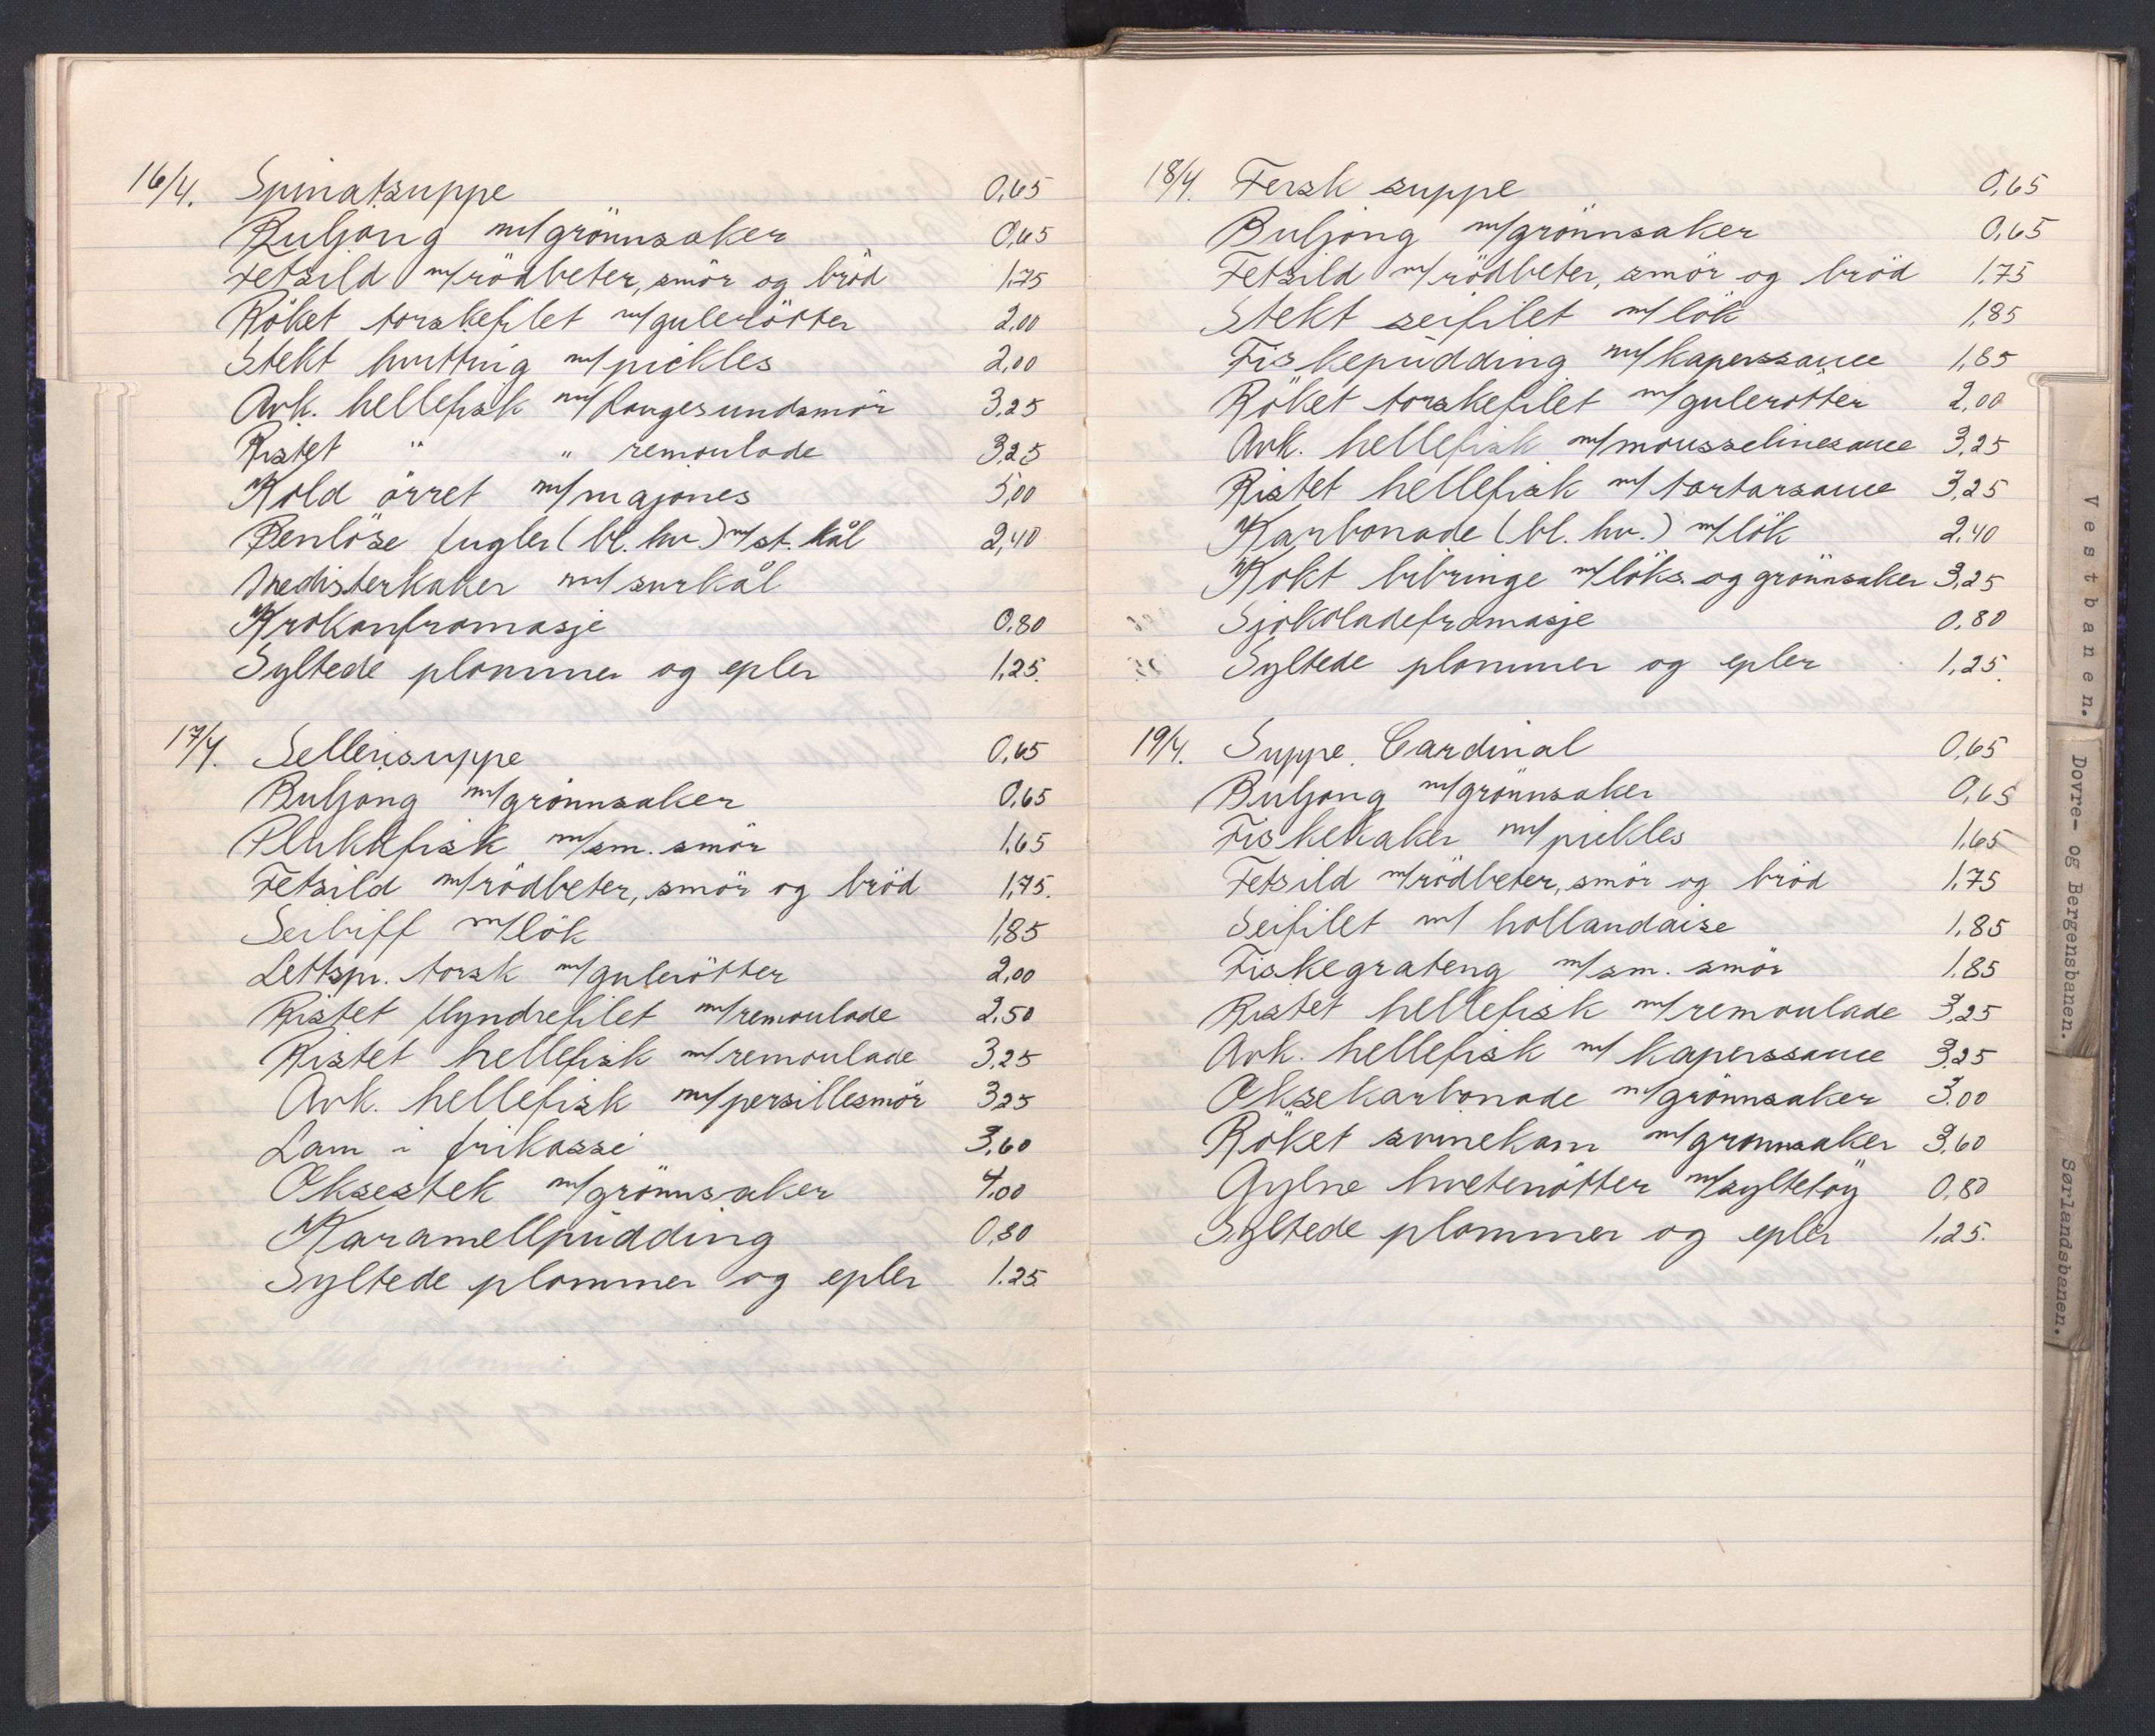 16/4. Spinatsuppe 0,65
Buljong m/grönnsaker 0,65
Fetsild m/rödbeter, smör og bröd 1,75
Röket torskefilet m/gulerötter 2,00
Stekt hvitting m/pickles 2,00
Avk. hellefisk m/Langesundsmör 3,25
Ristet " " remoulade 3,25
Kold örret m/majones 5,00
Benlöse fugler (bl. hv.) m/st. kål 2,40
Medisterkaker m/surkål
Krokanfromasje 0.80
Syltede plommer og epler 1,25.
17/4. Sellerisuppe 0,65
Buljong m/grönnsaker 0,65
Plukkfisk m/sm. smör 1,65
Fetsild m/rödbeter, smör og bröd 1,75.
Seibiff m/lök 1,85
Lettspr. torsk m/gulerötter 2,00
Ristet flyndrefilet m/remoulade 2,50
Ristet hellefisk m/remoulade 3,25
Avk. hellefisk m/persillesmör 3,25
Lam i frikassé 3,60
Oksestek m/grönnsaker 4,00
Karamellpudding 0,80
Syltede plommer og epler 1.25
18/4. Fersk suppe 0,65
Buljong m/grönnsaker 0,65
Fetsild m/rödbeter, smör og bröd 1,75
Stekt seifilet m/lök 1,85
Fiskepudding m/kaperssauce 1,85
Röket torskefilet m/gulerötter 2,00
Avk. hellefisk m/mousselinesauce 3,25
Ristet hellefisk m/tartarsauce 3,25
Karbonade (bl. hv.) m/lök 2.40
Kokt bibringe m/löks. og grönnsaker 3,25
Sjokoladefromasje 0,80
Syltede plommer og epler 1,25.
19/4. Suppe Cardinal 0,65
Buljong m/grönnsaker 0,65
Fiskekaker m/pickles 1,65
Fetsild m/rödbeter, smör og bröd 1,75
Seifilet m/ hollandaise 1,85
Fiskegrateng m/sm. smör 1.85
Ristet hellefisk m/remoulade 3,25
Avk. hellefisk m/ kaperssauce 3,25
Oksekarbonade m/grönnsaker 3.00
Röket svinekam m/grønnsaker 3,60
Gylne hvetenötter m/syltetöy 0,80
Syltede plommer og epler 1,25.
Vestbanen.
Dovre- og Bergensbanen.
Sørlandsbanen.